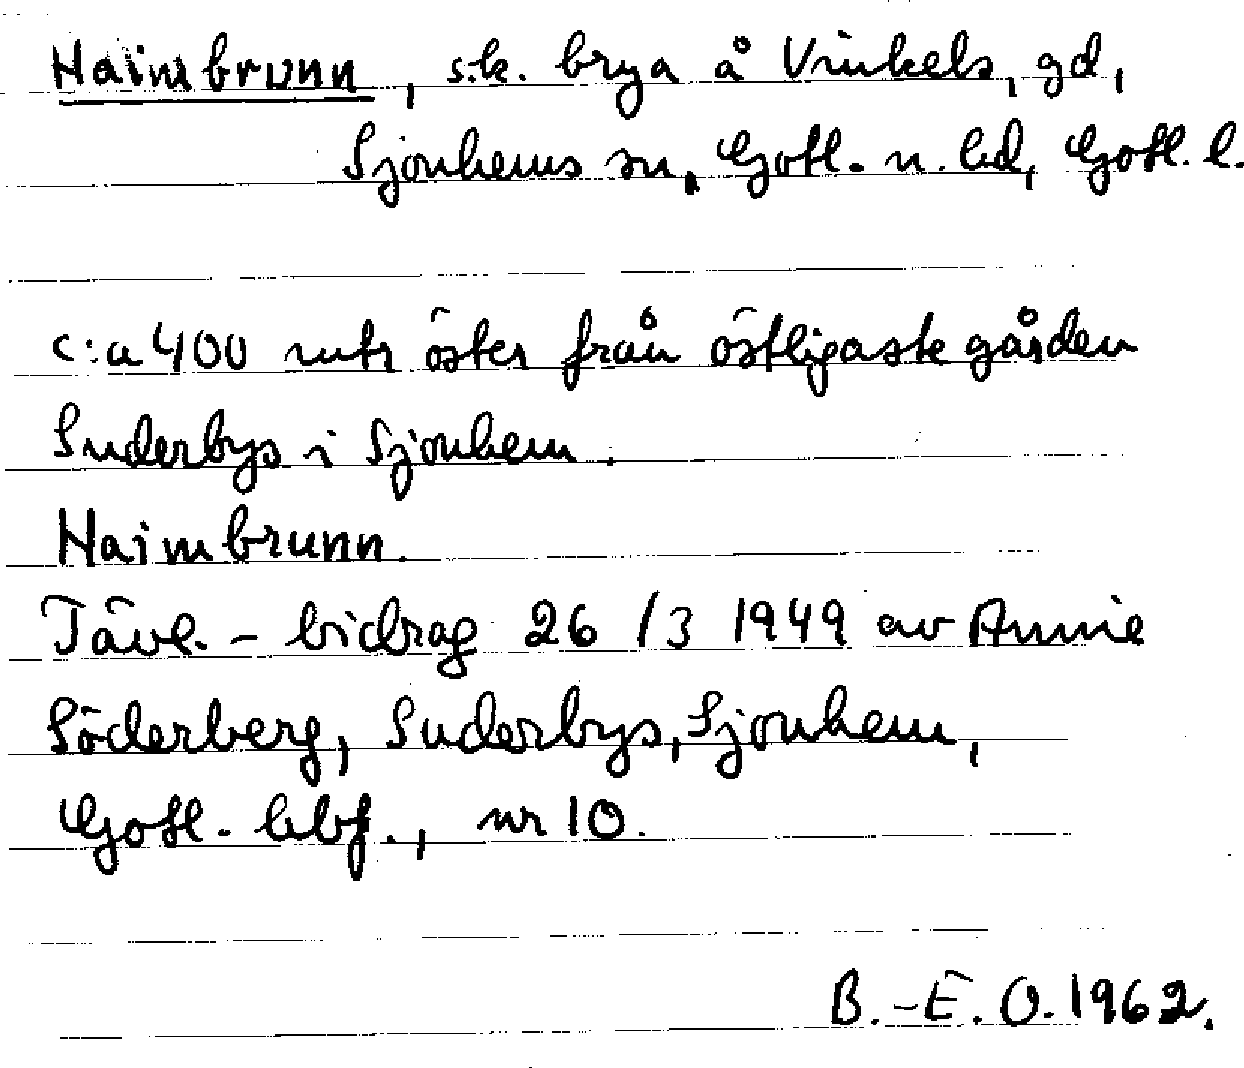 Haimbrunn, s.k. brya å Vinkels, gd,
Sjonhems sn, Gotl. n. hd, Gotl. l.
c:a 400 mtr öster från östligaste gården
Suderbys i Sjonhem.
Haimbrunn.
Tävl.-bidrag 26/3 1949 av Annie
Söderberg, Suderbys, Sjonhem,
Gotl. hbf., nr 10.
B.-E. O. 1962.